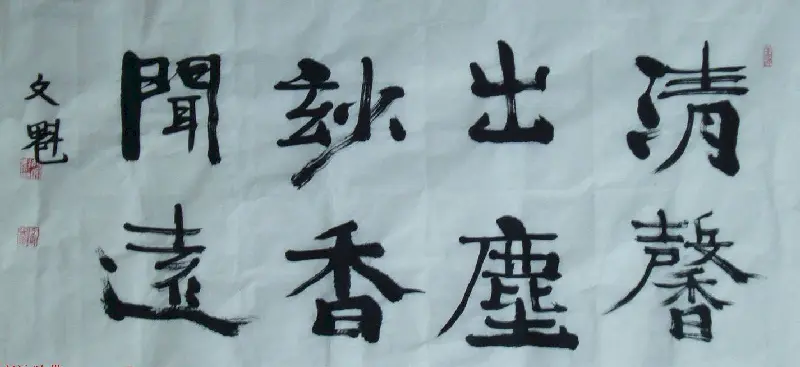 清馨
出塵
玅香
聞遠
文魁